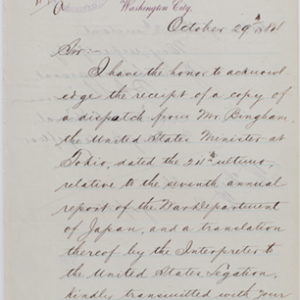 Washington City,
October 29th
Sir:-
I have the honor to acknowl
edge the receipt of a copy of
a dispatch from Mr. Bingham
the United States Minister at
Tokio, dated the 24th ultimo,
relative to the seventh annual
report of the War Department
of Japan, and a translation
thereof by the Interpreter to
the United States Legation,
kindly transmitted with your